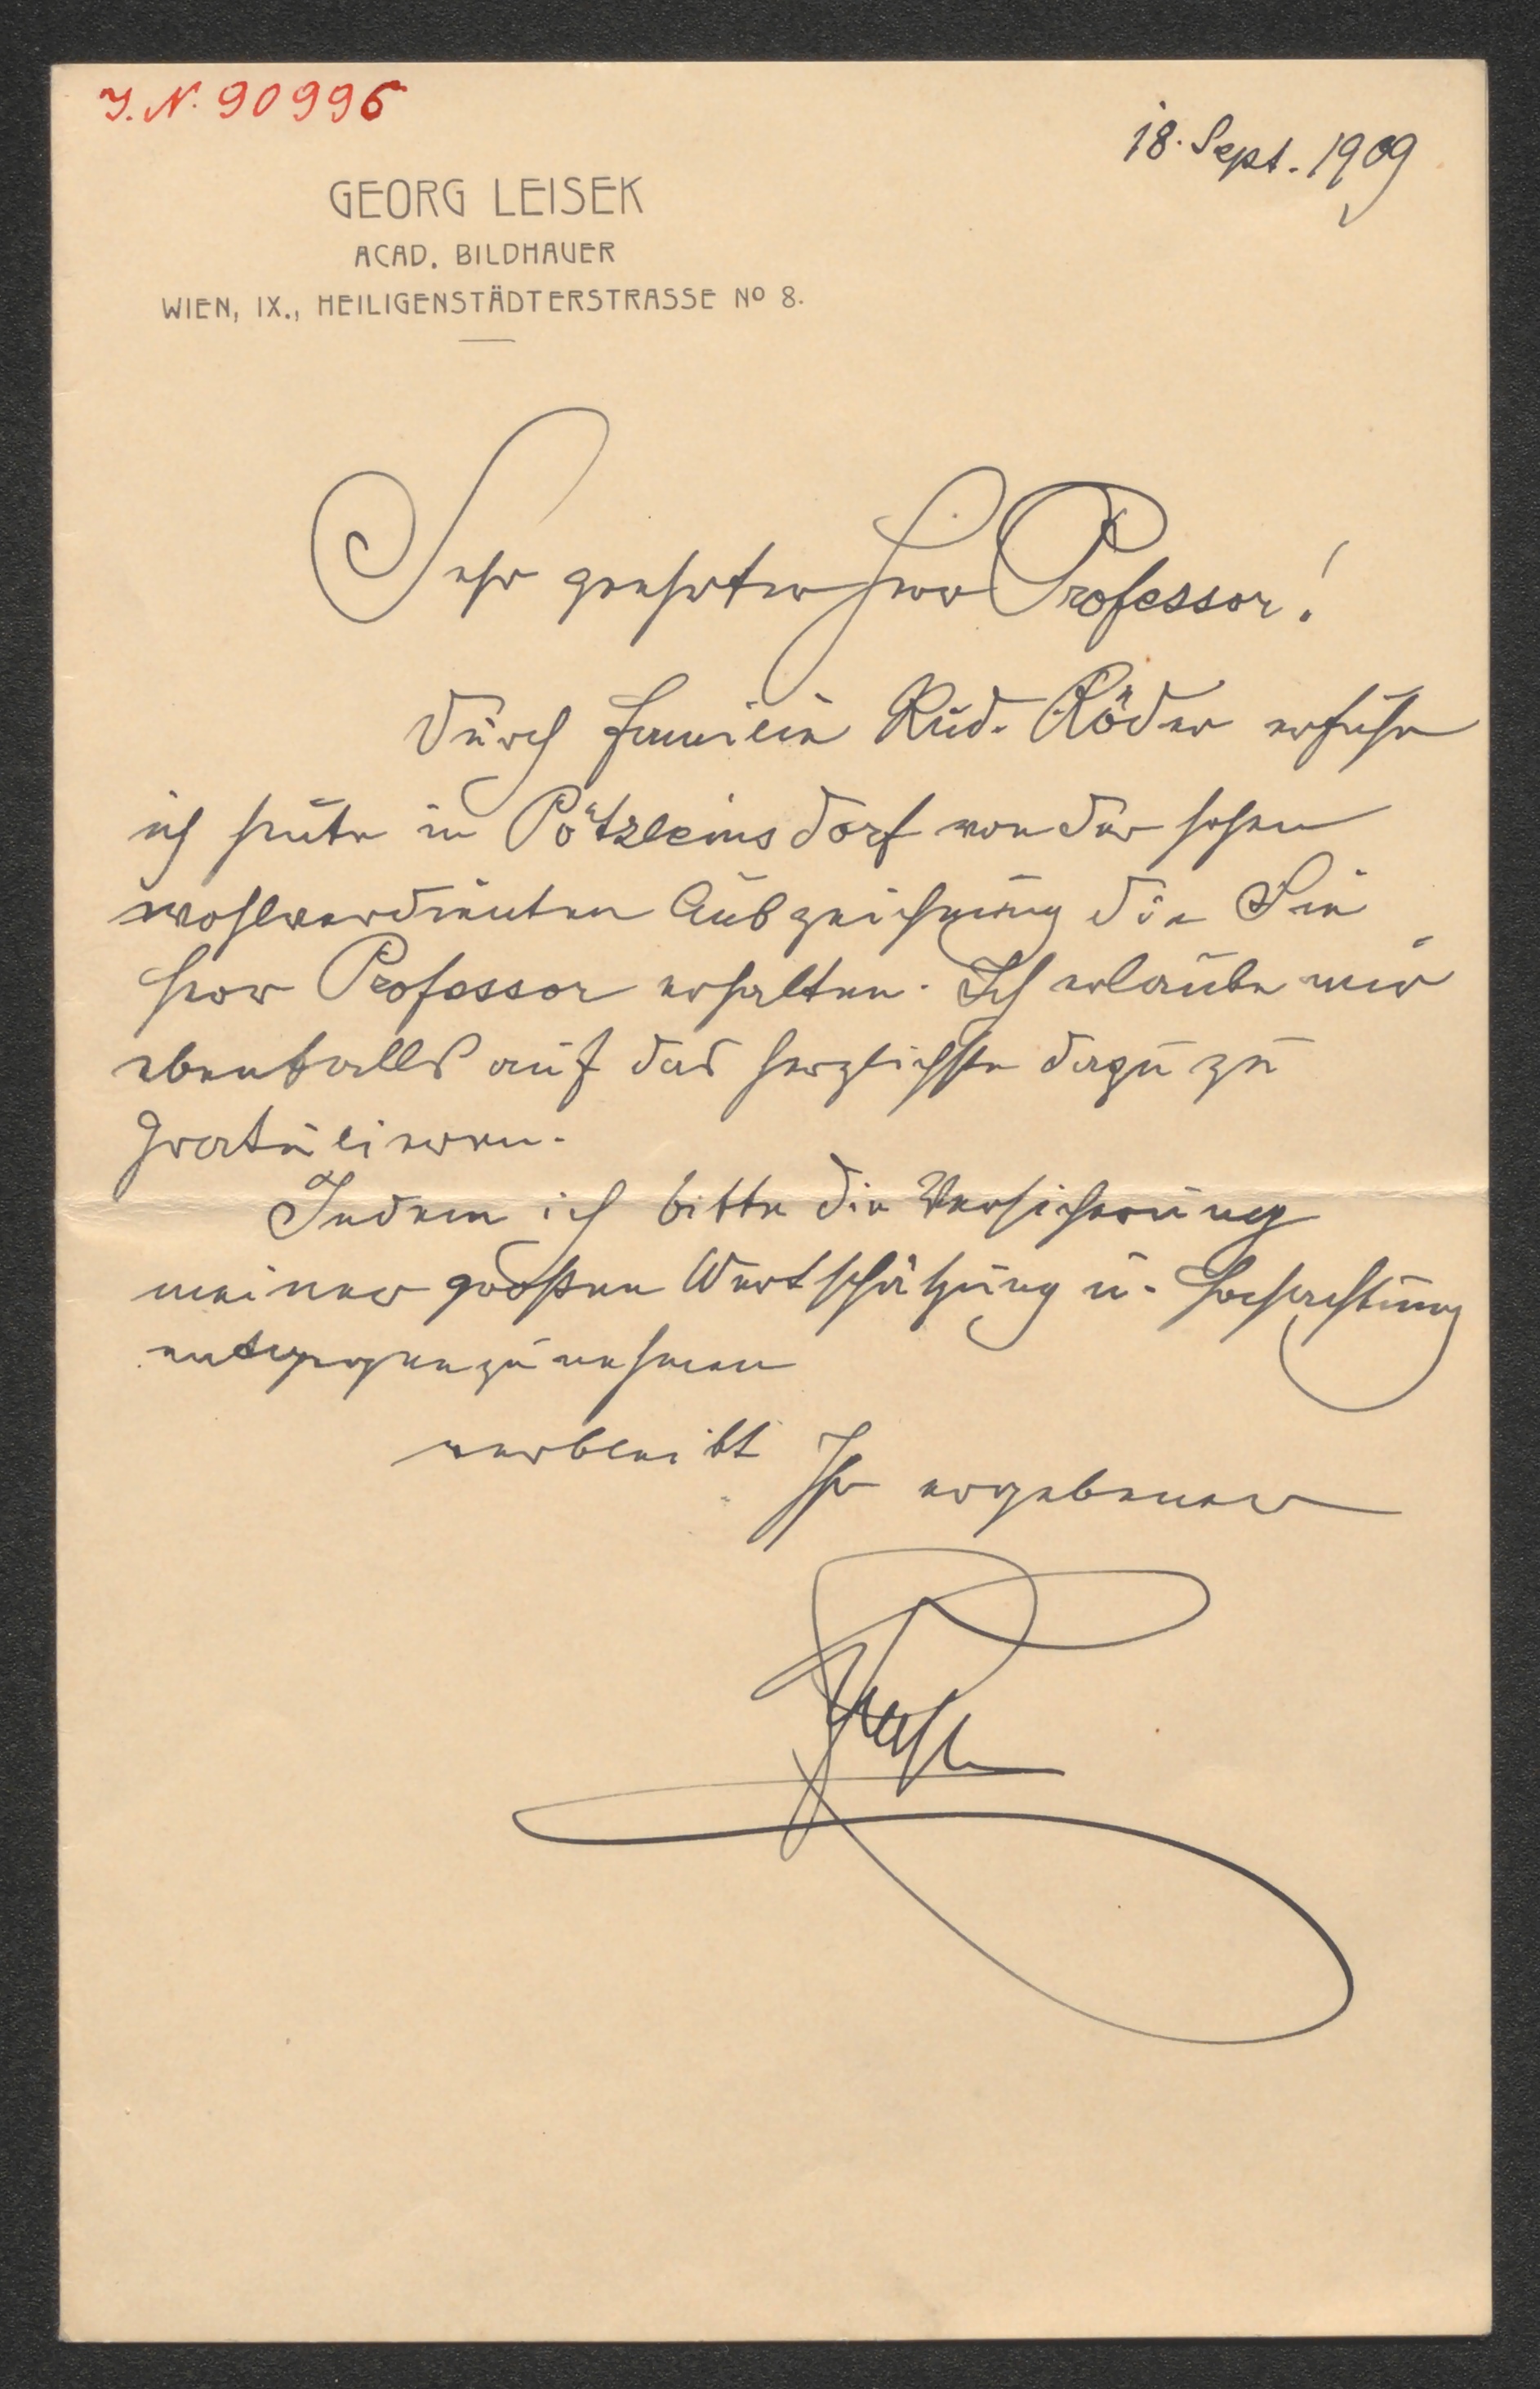 J. N. 90996
18. Sept. 1909
GEORG LEISEK
ACAD. BILDHAUER
WIEN, IX., HEILIGENSTÄDTERSTRASSE No 8.
Sehr geehrter Herr Professor!
Durch Familie Rud. Röder erfuhr
ich heute in Pötzleinsdorf von der hohen
wohlverdienten Auszeichnung die Sie
Herr Professor erhalten. Ich erlaube mir
ebenfalls auf das herzlichste dazu zu
gratulieren.
Indem ich bitte die Versicherung
meiner großen Wertschätzung u. Hochachtung
entgegenzunehmen
verbleibt Ihr ergebener